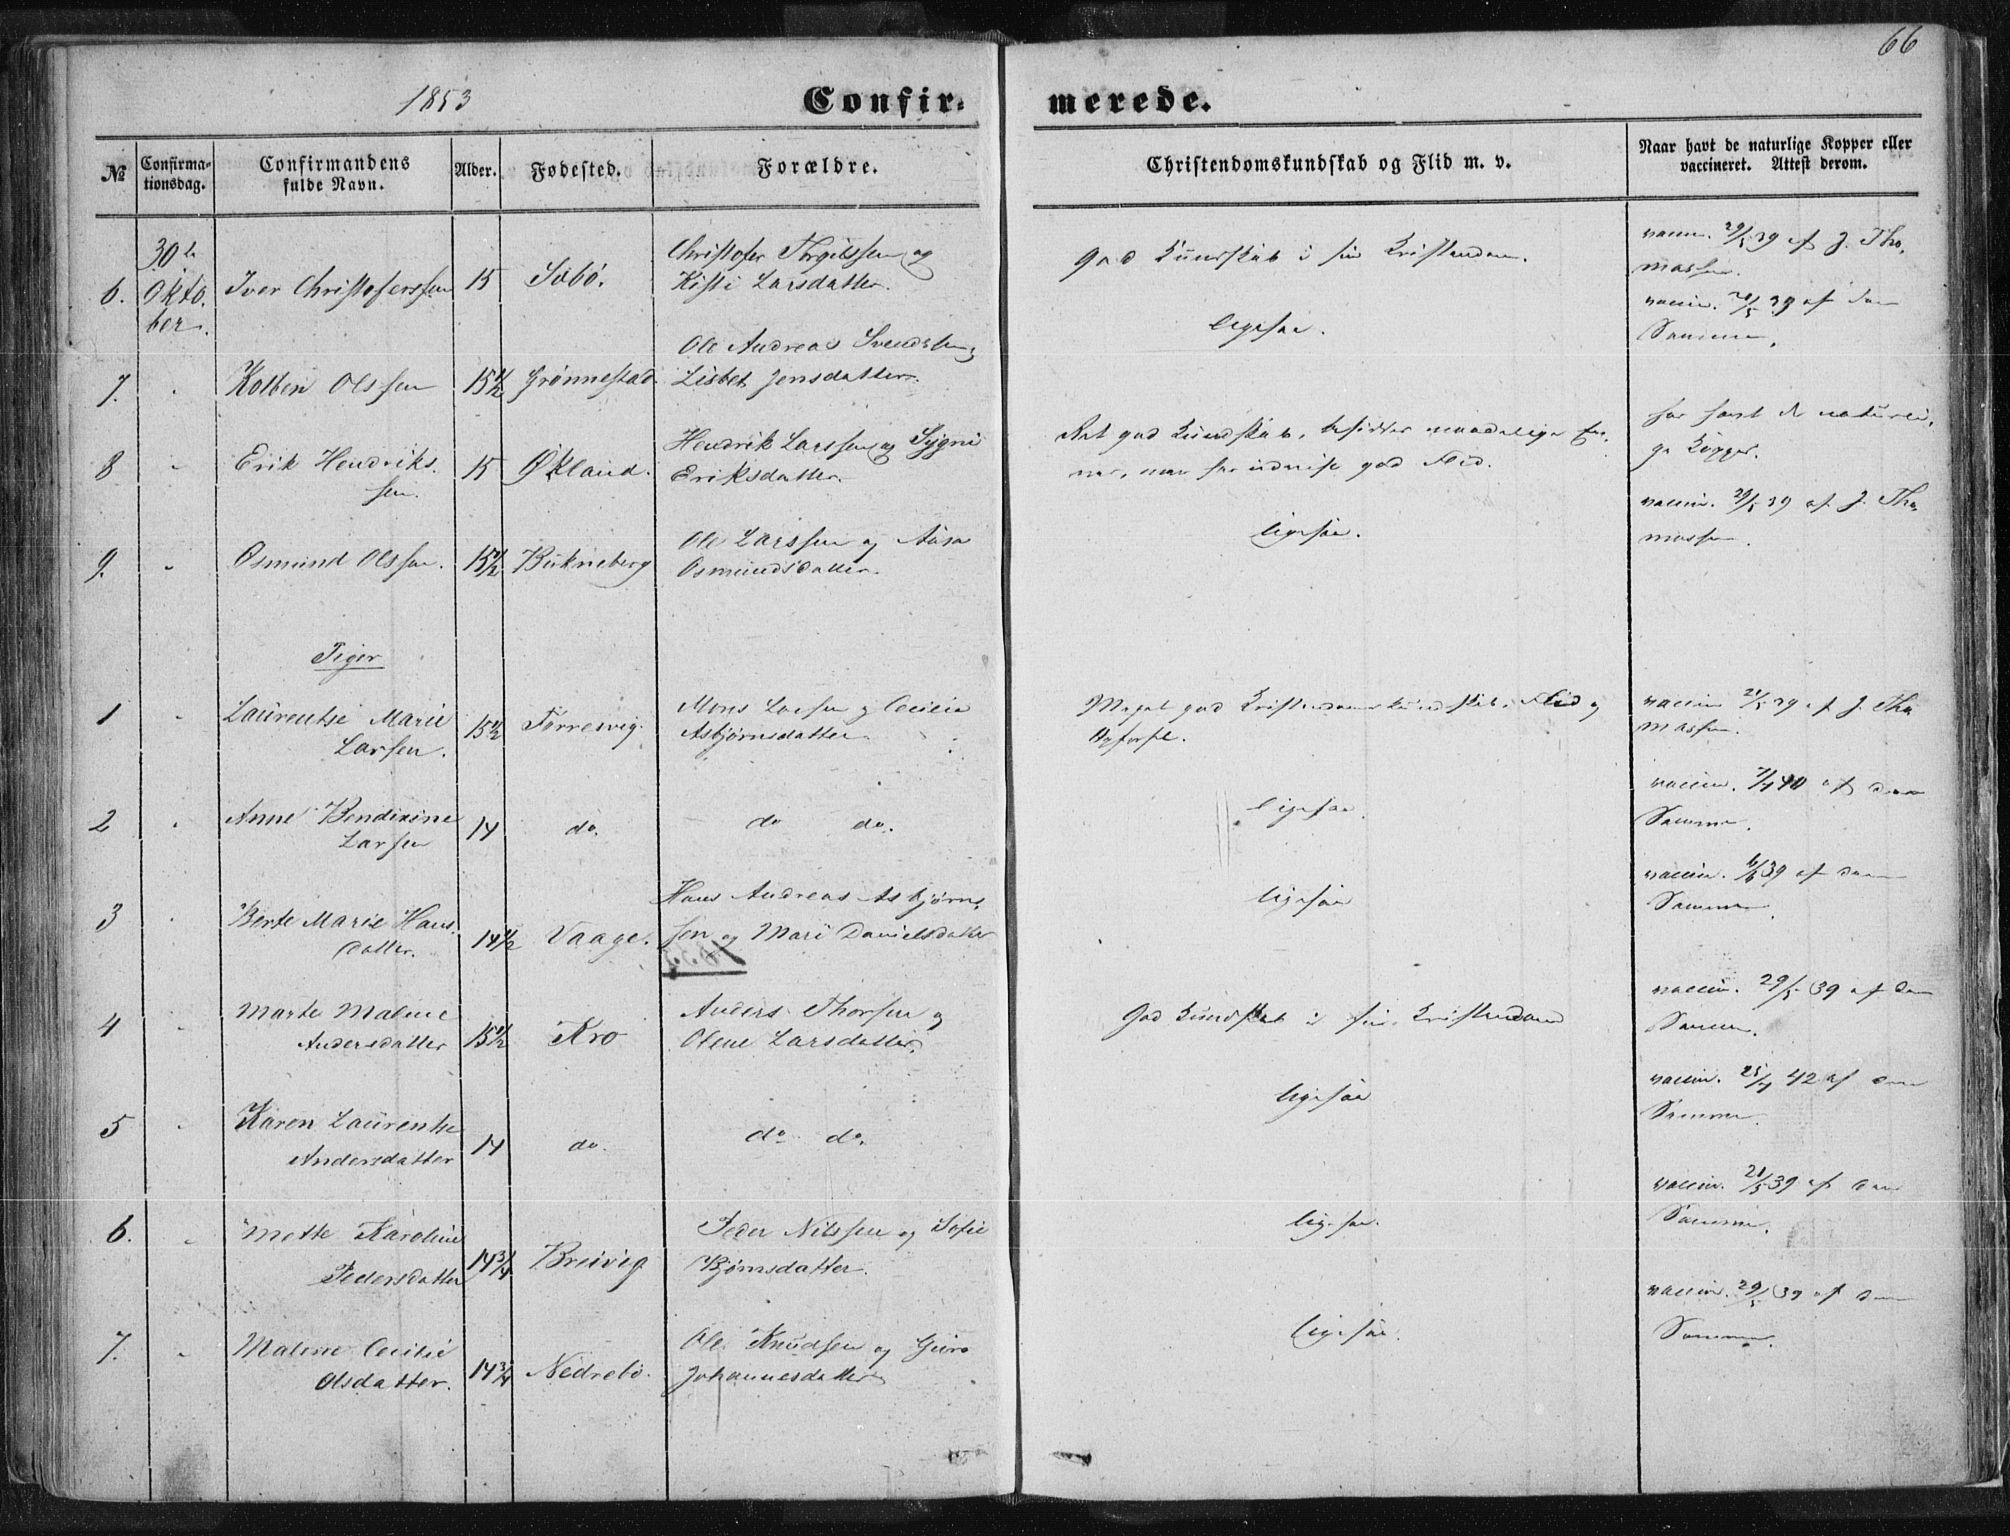 66
1853
Confir-
merede.
№
Confirma-
tionsdag.
Confirmandens
fulde Navn.
Alder.
Fødested.
Forældre.
Christendomskundskab og Flid m. v.
Naar havt de naturlige Kopper eller
vaccineret. Attest derom.
6.
30te
Okto.
ber.
Iver Christofersen
15
Søbø.
Christofer Torgilssen og
Kisti Larsdatter.
God Kundskab i sin Kristendom.
vaccin. 29/5 39 af J. Tho
massen.
7.
Kolben Olssen
15 1/2
Grønnestad.
Ole Andreas Svendsen
Lisbet Jensdatter.
ligesaa.
vaccin. 29/5 39 af den
Samme.
8
Erik Hendriks.
sen.
15
Økland.
Hendrik Larssen og Sygni
Eriksdatter.
Ret god Kundskab, besidder maadelige Ev.
ner, men har udvist god Flid.
har havt de naturli.
ge Kopper.
9.
Osmund Olssen.
15 1/2
Birkneberg
Ole Larssen og Aasa
Osmundsdatter.
ligesaa.
vaccin. 29/5 39 af J. Tho.
massen.
Piger
1
Laurentse Marie
Larsen.
15 1/2
Førresvig.
Mons Larsen og Cecilie
Asbjørnsdatter.
Meget god Kristendomskundskab, Flid og
Opførsel.
vaccin 21/5 39 af J. Tho
massen.
2
Anne Bendixine
Larsen
14
do.
do do.
ligesaa.
vaccin. 7/7 40 af den
Samme.
3
Berte Marie Hans.
datter.
14 1/2
Vaage.
Hans Andreas Asbjørn.
sen og Mari Danielsdatter
ligesaa
vaccin. 6/6 39 af den
Samme.
4
Marte Malene
Andersdatter
15 1/2
Kro
Anders Thorsen og
Olene Larsdatter.
God Kundskab i sin Kristendom
vaccin. 29/5 39 af den
Samme.
5
Karen Laurentse
Andersdatter
14
do.
do do.
ligesaa
vaccin. 25/7 42 af den
Samme.
6.
Mette Karoline
Pedersdatter
14 3/4
Breivig
Peder Nilssen og Sofie
Bjørnsdatter.
ligesaa.
vaccin. 21/5 39 af den
Samme.
7.
Malene Cecilie
Olsdatter.
14 3/4
Nedrebø.
Ole Knudsen og Guro
Johannesdatter
ligesaa.
vaccin. 29/5 39 af den
Samme.